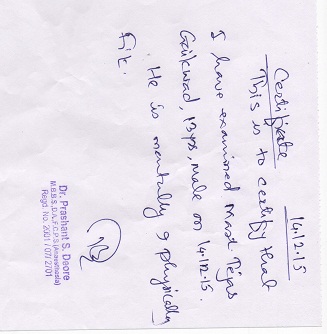 14.12.15
Certificate
This is to certify that
I have examined Mast. Tejas
Gaikwad, 13 yrs, male on 14.12.15.
He is mentally & physically
Fit.
Dr. Prashant S. Deore
M.B.B.S., D.A., F.C.P.S. (Anaesthesia)
Regd. No. 2001 / 07 / 2701